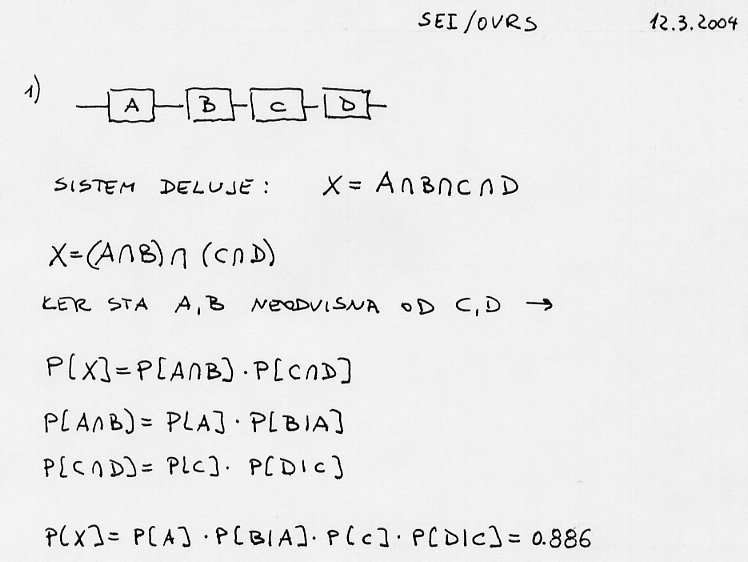 SEI/OVRS 12.3.2004
1) A B C D
SISTEM DELUJE: X = A∩B∩C∩D
X=(A∩B)∩(C∩D)
KER STA A,B NEODVISNA OD C,D →
P[X]=P[A∩B]·P[C∩D]
P[A∩B]=P[A]·P[B|A]
P[C∩D]=P[C]·P[D|C]
P[X]=P[A]·P[B|A]·P[C]·P[D|C]=0.886